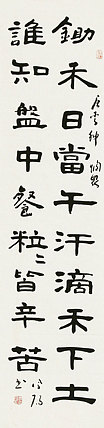 鋤禾日當午汗滴禾下土
誰知盤中餐粒〻皆辛苦